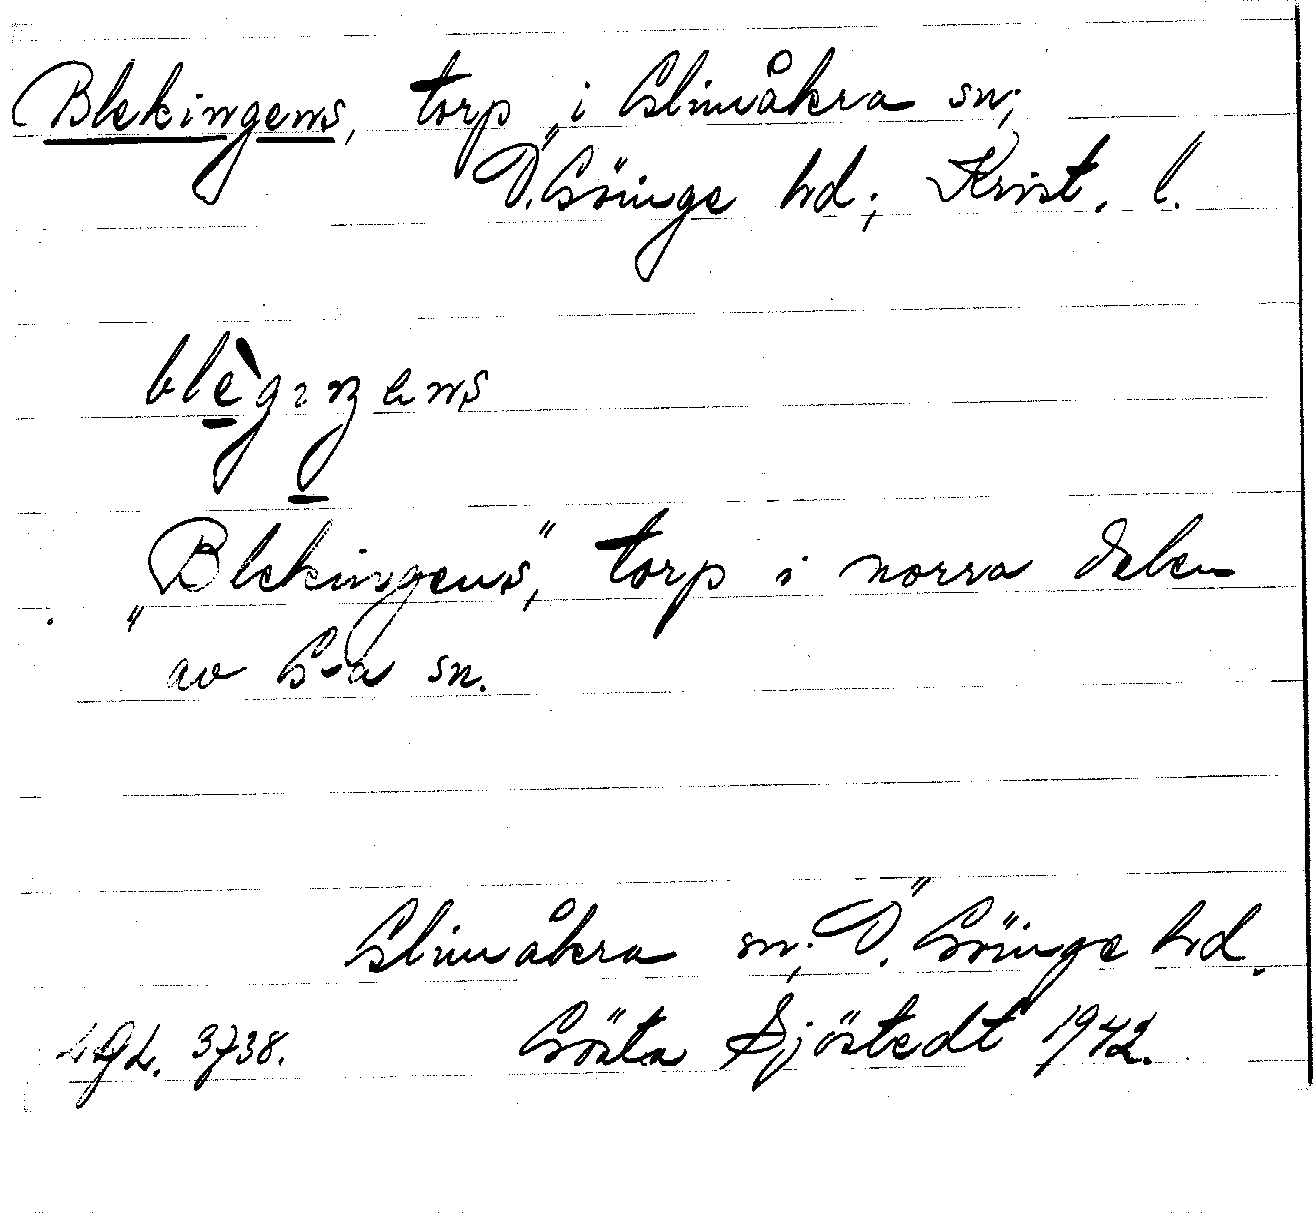 Blekingens, torp i Glimåkra sn;
Ö. Göinge hd; Krist. l.
blègıŋens
„Blekingens", torp i norra delen
av G-a sn.
Glimåkra sn; Ö. Göinge hd.
Gösta Sjöstedt 1942.
3738.